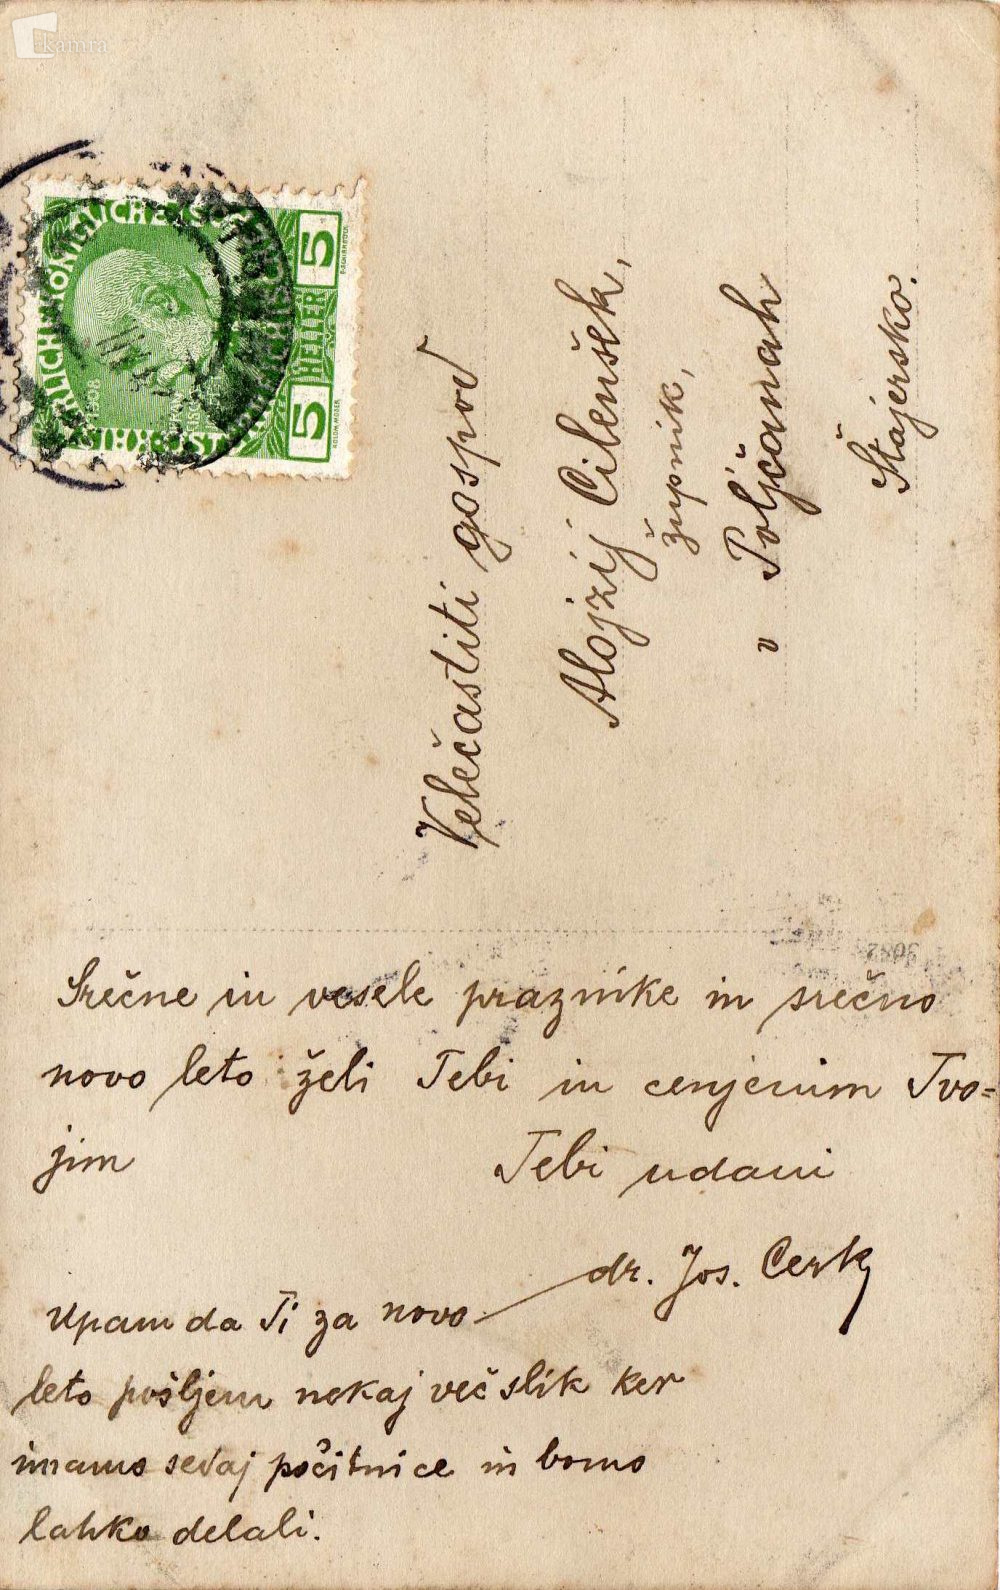 kamra
5 HELLER 5
1908
Velečastiti gospod
Alojzij Cilenšek,
župnik,
v Poljčanah
Štajersko.
Srečne in vesele praznike in srečno
novo leto želi Tebi in cenjenim Tvo=
jim
Tebi udani
dr. Jos. Cerk
Upam da Ti za novo
leto pošljem nekaj več slik ker
imamo sedaj počitnice in bomo
lahko delali.